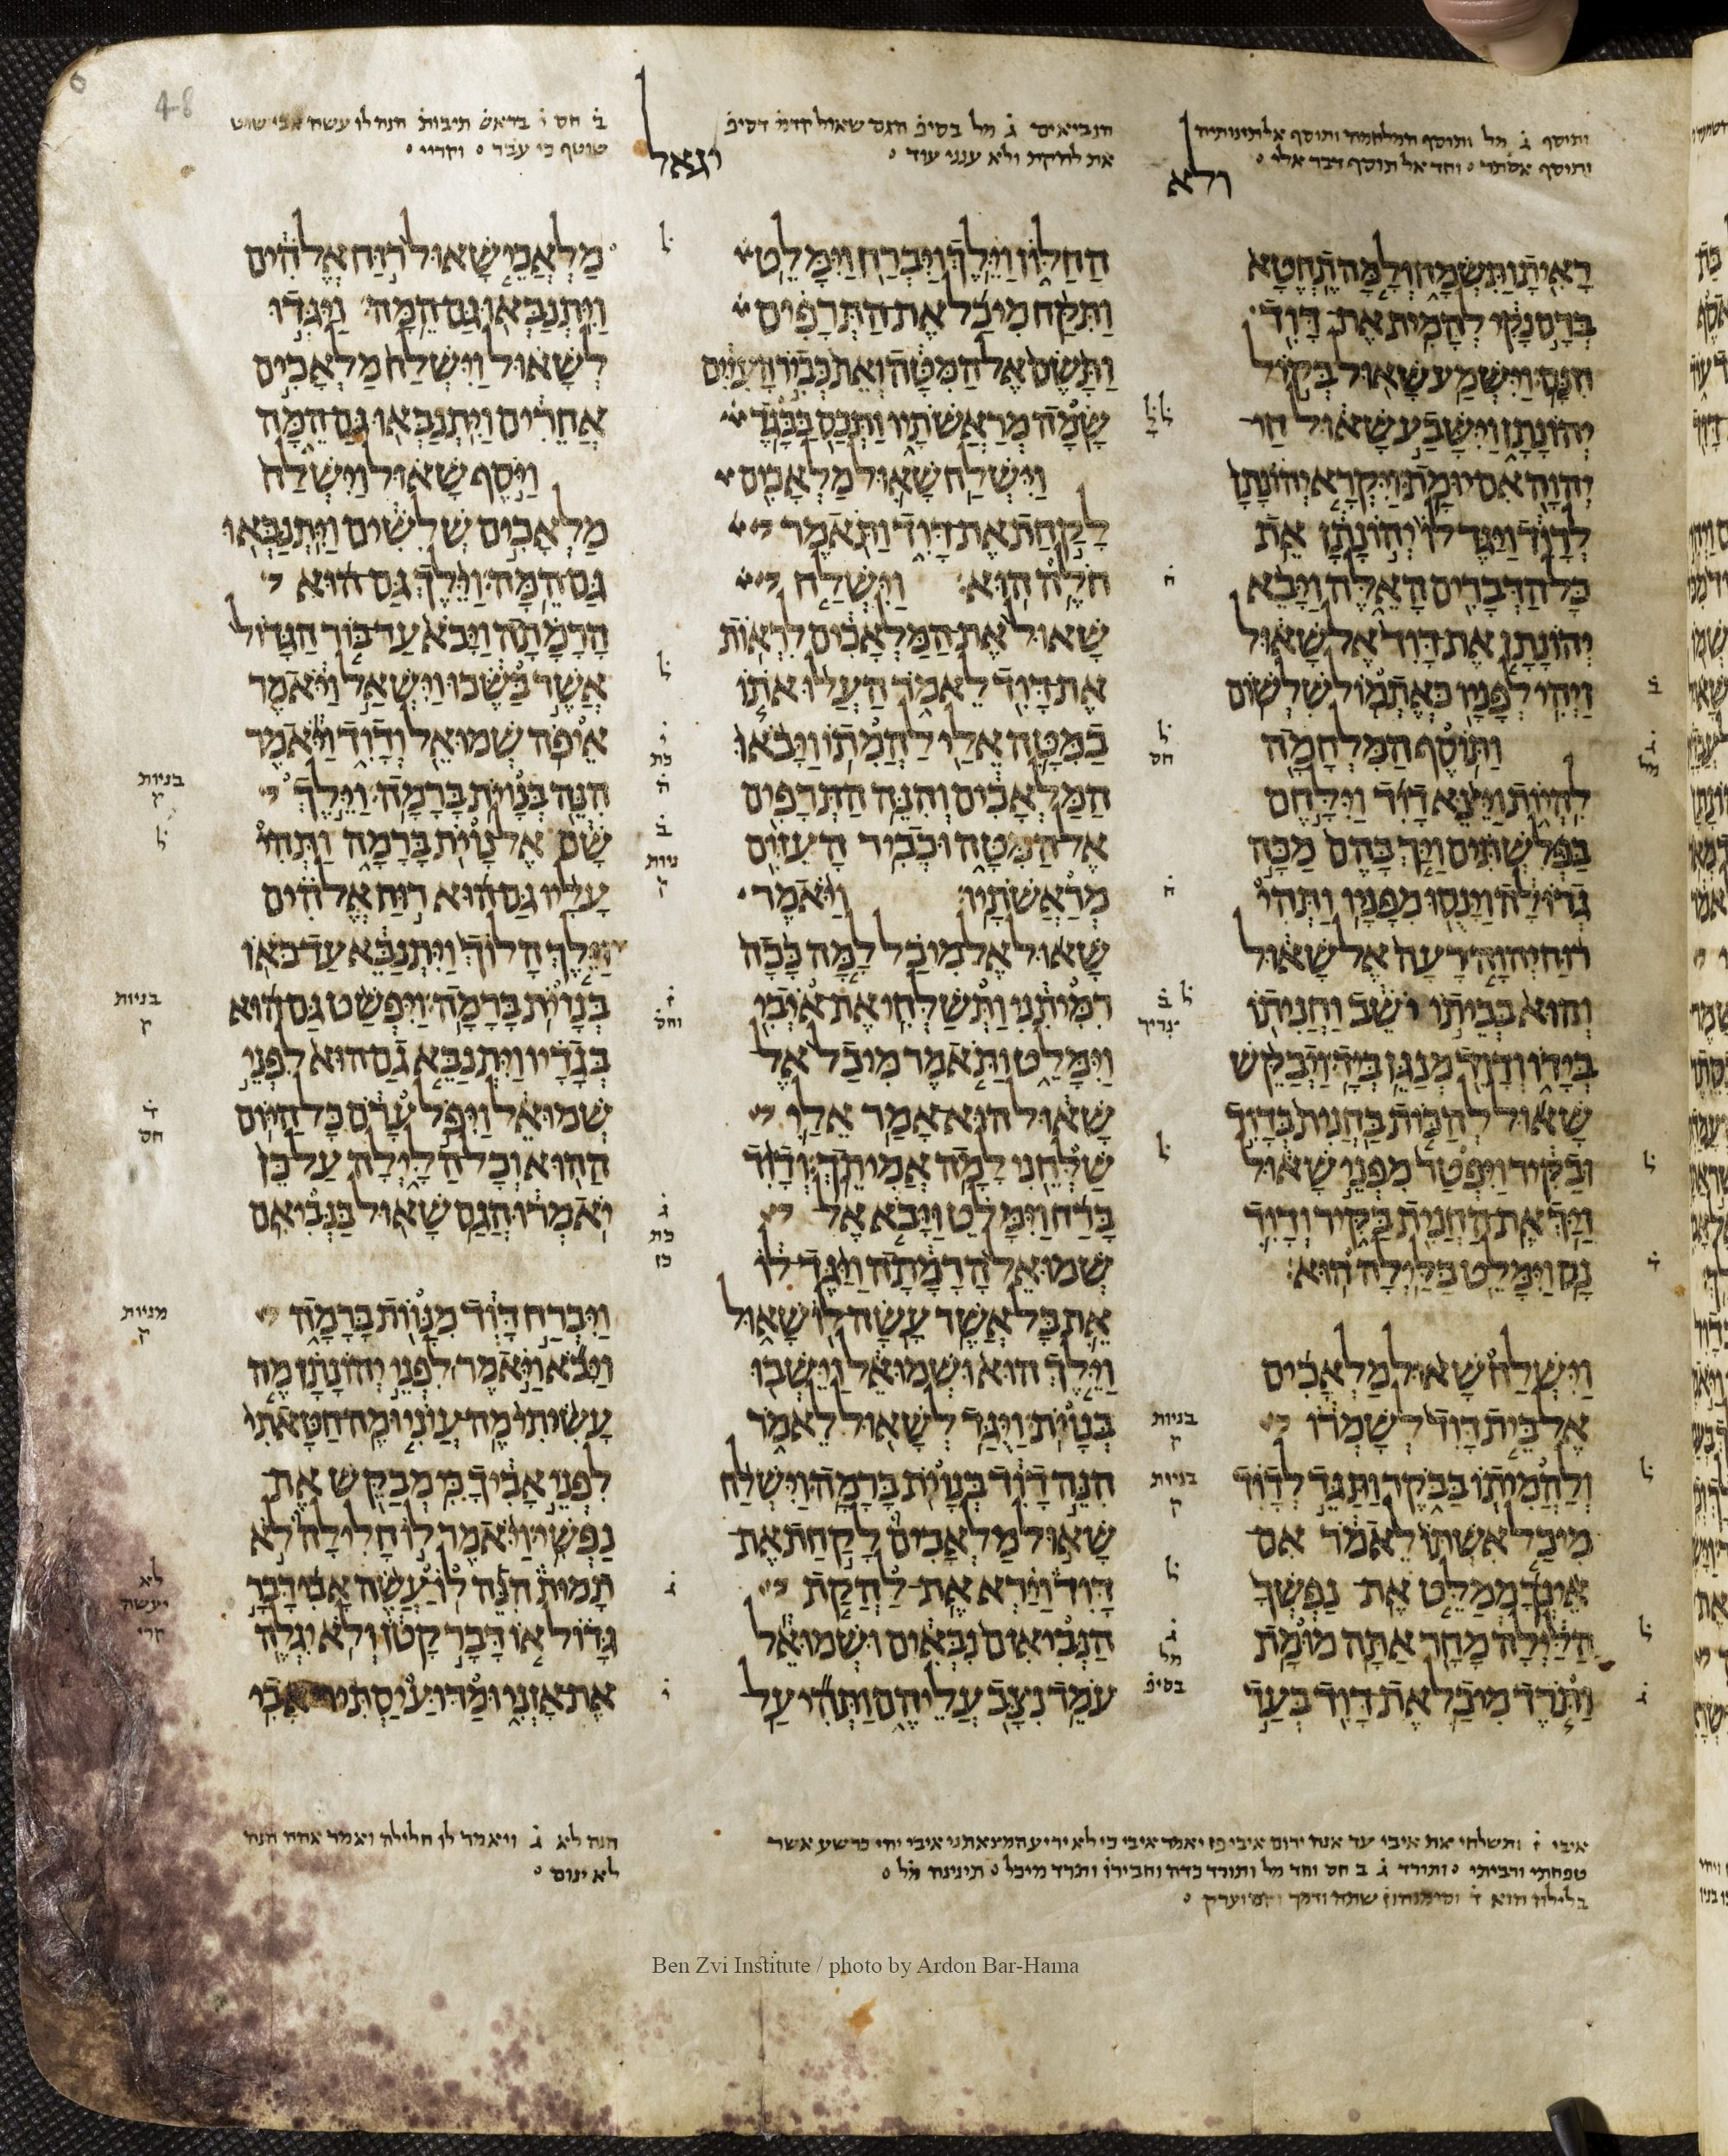 48
ותוסף ג֗ מל ותוסף המלחמה ותוסף אלתינותיה
ותוסף אסתר ׃ וחד אל תוסף דבר אלי ׃
ולא
רָאִיתָ וַתִּשְׂמָח וְלָמָּה תֶחֱטָא
בְּדָם נָקִי לְהָמִית אֶת דָּוִד
חִנָּם וַיִּשְׁמַע שָׁאוּל בְּקוֹל
יְהוֹנָתָן וַיִּשָּׁבַע שָׁאוּל חַי
יְהוָה אִם יוּמָת וַיִּקְרָא יְהוֹנָתָן
לְדָוִד וַיַּגֶּד לוֹ יְהוֹנָתָן אֵת
כָּל הַדְּבָרִים הָאֵלֶּה וַיָּבֵא
יְהוֹנָתָן אֶת דָּוִד אֶל שָׁאוּל
וַיְהִי לְפָנָיו כְּאֶתְמוֹל שִׁלְשׁוֹם
וַתּוֹסֶף הַמִּלְחָמָה
לִהְיוֹת וַיֵּצֵא דָוִד וַיִּלָּחֶם
בַּפְּלִשְׁתִּים וַיַּךְ בָּהֶם מַכָּה
גְדוֹלָה וַיָּנֻסוּ מִפָּנָיו וַתְּהִי
רוּחַ יְהוָה רָעָה אֶל שָׁאוּל
וְהוּא בְּבֵיתוֹ יֹשֵׁב וַחֲנִיתוֹ
בְּיָדוֹ וְדָוִד מְנַגֵּן בְּיָד וַיְבַקֵּשׁ
שָׁאוּל לְהַכּוֹת בַּחֲנִית בְּדָוִד
וּבַקִּיר וַיִּפְטַר מִפְּנֵי שָׁאוּל
וַיַּךְ אֶת הַחֲנִית בַּקִּיר וְדָוִד
נָס וַיִּמָּלֵט בַּלַּיְלָה הוּא
וַיִּשְׁלַח שָׁאוּל מַלְאָכִים
אֶל בֵּית דָּוִד לְשָׁמְרוֹ
וְלַהֲמִיתוֹ בַּבֹּקֶר וַתַּגֵּד לְדָוִד
מִיכַל אִשְׁתּוֹ לֵאמֹר אִם
אֵינְךָ מְמַלֵּט אֶת נַפְשְׁךָ
הַלַּיְלָה מָחָר אַתָּה מוּמָת
וַתֹּרֶד מִיכַל אֶת דָּוִד בְּעַד
הנביאים ג֗ מל בסיפ הגם שאול קדמ דסיפ
את להקת ולא ענני עוד ׃
יגאל
הַחַלּוֹן וַיֵּלֶךְ וַיִּבְרַח וַיִּמָּלֵט
וַתִּקַּח מִיכַל אֶת הַתְּרָפִים
וַתָּשֶׂם אֶל הַמִּטָּה וְאֵת כְּבִיר הָעִזִּים
שָׂמָה מְרַאֲשֹׁתָיו וַתְּכַס בַּבָּגֶד
וַיִּשְׁלַח שָׁאוּל מַלְאָכִים
לָקַחַת אֶת דָּוִד וַתֹּאמֶר
חֹלֶה הוּא וַיִּשְׁלַח
שָׁאוּל אֶת הַמַּלְאָכִים לִרְאוֹת
אֶת דָּוִד לֵאמֹר הַעֲלוּ אֹתוֹ
בַמִּטָּה אֵלַי לַהֲמִתוֹ וַיָּבֹאוּ
הַמַּלְאָכִים וְהִנֵּה הַתְּרָפִים
אֶל הַמִּטָּה וּכְבִיר הָעִזִּים
מְרַאֲשֹׁתָיו וַיֹּאמֶר
שָׁאוּל אֶל מִיכַל לָמָּה כָּכָה
רִמִּיתִנִי וַתְּשַׁלְּחִי אֶת אֹיְבִי
וַיִּמָּלֵט וַתֹּאמֶר מִיכַל אֶל
שָׁאוּל הוּא אָמַר אֵלַי
שַׁלְּחִנִי לָמָה אֲמִיתֵךְ וְדָוִד
בָּרַח וַיִּמָּלֵט וַיָּבֹא אֶל
שְׁמוּאֵל הָרָמָתָה וַיַּגֶּד לוֹ
אֵת כָּל אֲשֶׁר עָשָׂה לוֹ שָׁאוּל
וַיֵּלֶךְ הוּא וּשְׁמוּאֵל וַיֵּשְׁבוּ
בְּנָוֹיֹת וַיֻּגַּד לְשָׁאוּל לֵאמֹר
הִנֵּה דָוִד בְּנָוֹיֹת בָּרָמָה וַיִּשְׁלַח
שָׁאוּל מַלְאָכִים לָקַחַת אֶת
דָּוִד וַיַּרְא אֶת לַהֲקַת
הַנְּבִיאִים נִבְּאִים וּשְׁמוּאֵל
עֹמֵד נִצָּב עֲלֵיהֶם וַתְּהִי עַל
ב֗ חס ו֗ בראש תיבות הנה לו עשה אבי שוט
שוטף כי עבר ׃ וקריי ׃
מַלְאֲכֵי שָׁאוּל רוּחַ אֱלֹהִים
וַיִּתְנַבְּאוּ גַּם הֵמָּה וַיַּגִּדוּ
לְשָׁאוּל וַיִּשְׁלַח מַלְאָכִים
אֲחֵרִים וַיִּתְנַבְּאוּ גַּם הֵמָּה
וַיֹּסֶף שָׁאוּל וַיִּשְׁלַח
מַלְאָכִים שְׁלִשִׁים וַיִּתְנַבְּאוּ
גַּם הֵמָּה וַיֵּלֶךְ גַּם הוּא
הָרָמָתָה וַיָּבֹא עַד בּוֹר הַגָּדוֹל
אֲשֶׁר בַּשֶּׂכוּ וַיִּשְׁאַל וַיֹּאמֶר
אֵיפֹה שְׁמוּאֵל וְדָוִד וַיֹּאמֶר
הִנֵּה בְּנָוֹיֹת בָּרָמָה וַיֵּלֶךְ
שָׁם אֶל נָוֹיֹת בָּרָמָה וַתְּהִי
עָלָיו גַּם הוּא רוּחַ אֱלֹהִים
וַיֵּלֶךְ הָלוֹךְ וַיִּתְנַבֵּא עַד בֹּאוֹ
בְּנָוֹיֹת בָּרָמָה וַיִּפְשַׁט גַּם הוּא
בְּגָדָיו וַיִּתְנַבֵּא גַם הוּא לִפְנֵי
שְׁמוּאֵל וַיִּפֹּל עָרֹם כָּל הַיּוֹם
הַהוּא וְכָל הַלָּיְלָה עַל כֵּן
יֹאמְרוּ הֲגַם שָׁאוּל בַּנְּבִיאִם
וַיִּבְרַח דָּוִד מִנָּוֹיֹת בָּרָמָה
וַיָּבֹא וַיֹּאמֶר לִפְנֵי יְהוֹנָתָן מֶה
עָשִׂיתִי מֶה עֲוֹנִי וּמֶה חַטָּאתִי
לִפְנֵי אָבִיךָ כִּי מְבַקֵּשׁ אֶת
נַפְשִׁי וַיֹּאמֶר לוֹ חָלִילָה לֹא
תָמוּת הִנֵּה לֹו יַעֲשֶׂה אָבִי דָּבָר
גָּדוֹל אוֹ דָּבָר קָטֹן וְלֹא יִגְלֶה
אֶת אָזְנִי וּמַדּוּעַ יַסְתִּיר אָבִי
בניות
ק
בניות
ק
חס
מניות
ק
לא
יעשה
קרי
ניות
ק
בניות
ק
בניות
ק
איבי ז֗ ותשלחי את איבי עד אנה ירום איבי פן יאמר איבי כי לא יריע המצאתני איבי יהי כרשע אשר
טפחתי ורביתי ׃ ותורד ג֗ ב חס וחד מל ותורד כדה וחבירו ותרד מיכל ׃ תינינה מל ׃
בלילה הוא ד֗
הנה לא ג֗ ויאמר לו חלילה ואמר אחה הנה
לא ינום ׃
Ben Zvi Institute / photo by Ardon Bar-Hama